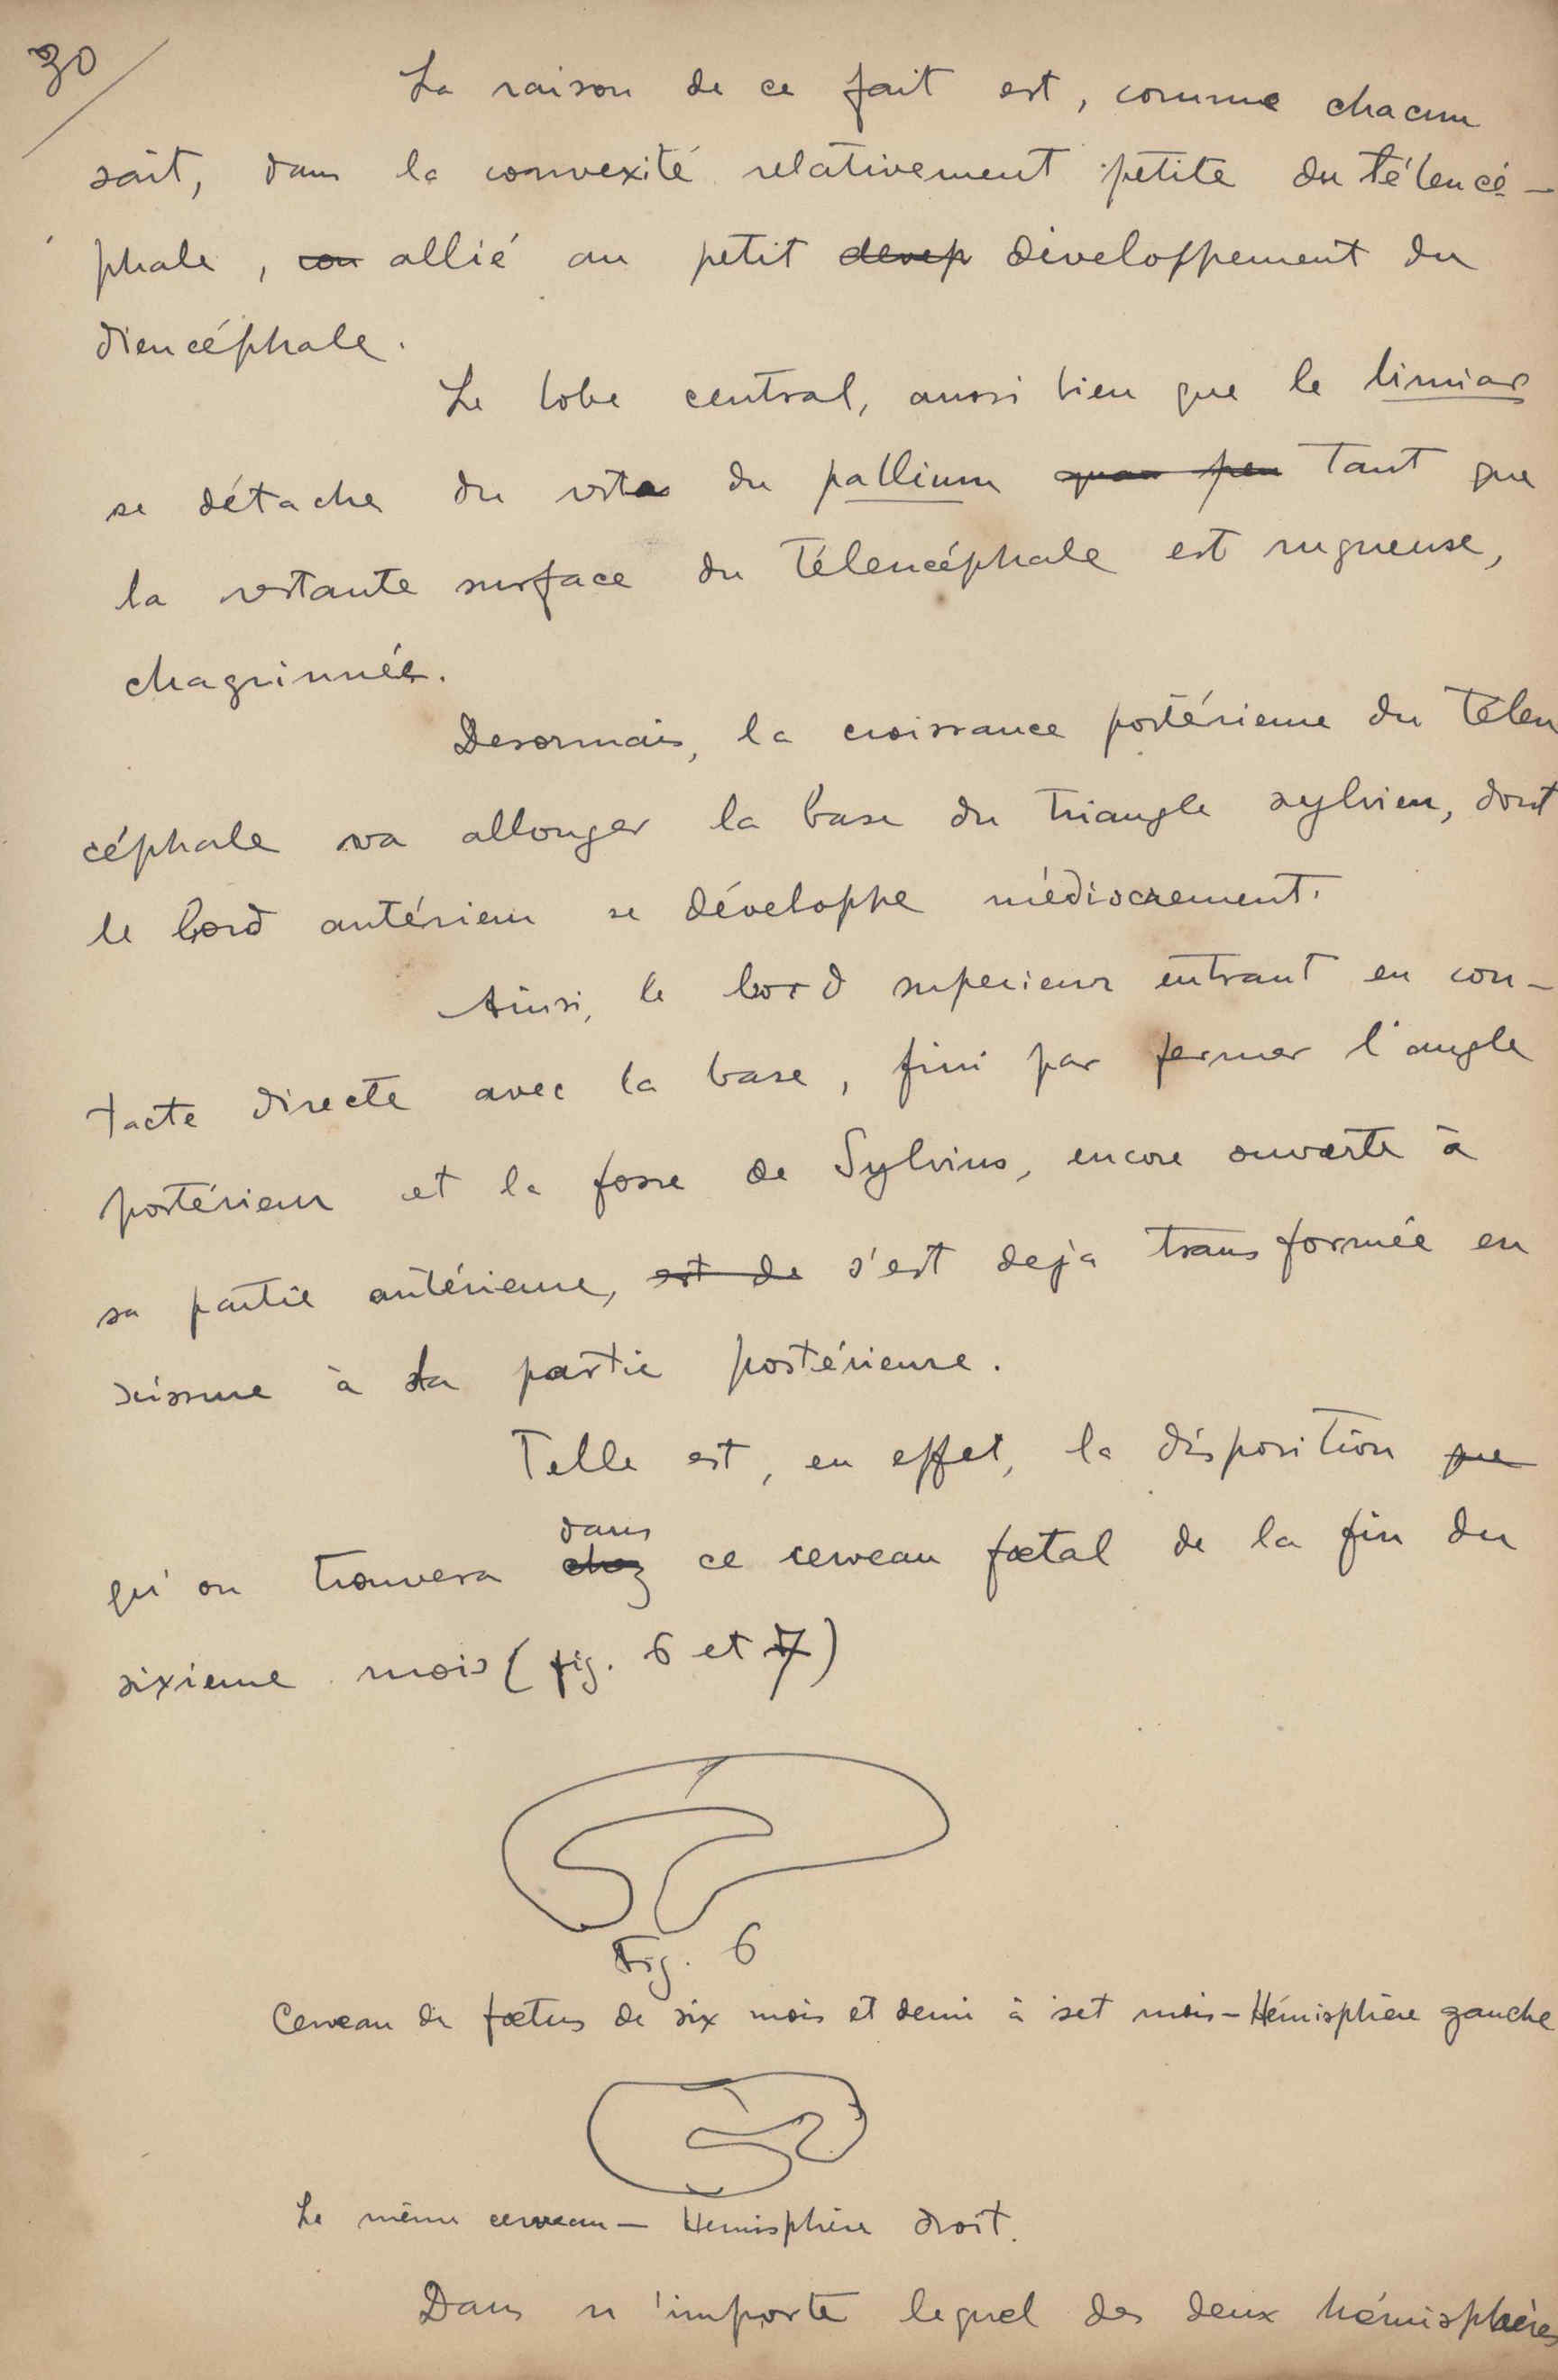 30
La raison de ce fait est, comme chacun
sait, dans la convexité relativement petite du télencé-
phale, con allié au petit devep développement du
diencéphale.
Le lobe central, aussi bien que le limiar
se détache du reste du pallium quan peu tant que
la restante surface du télencéphale est rugueuse,
chagrinnée.
Desormais, la croissance postérieure du télen
céphale va allonger la base du triangle sylvien, dont
le bord antérieur se développe médiocrement.
Ainsi, le bord superieur entrant en con-
tacte directe avec la base, fini par fermer l'angle
postérieur et la fosse de Sylvius, encore ouverte à
sa partie antérieure, est de s'est deja transformée en
scissure à sa partie postérieure.
Telle est, en effet, la disposition que
qu'on trouvera chez dans ce cerveau fœtal de la fin du
sixieme mois (fig. 6 et 7)
Fig. 6
Cerveau de fœtus de six mois et demi à set mois - Hémisphère gauche
Le même cerveau - Hemisphère droit.
Dans n'importe lequel des deux hémisphères